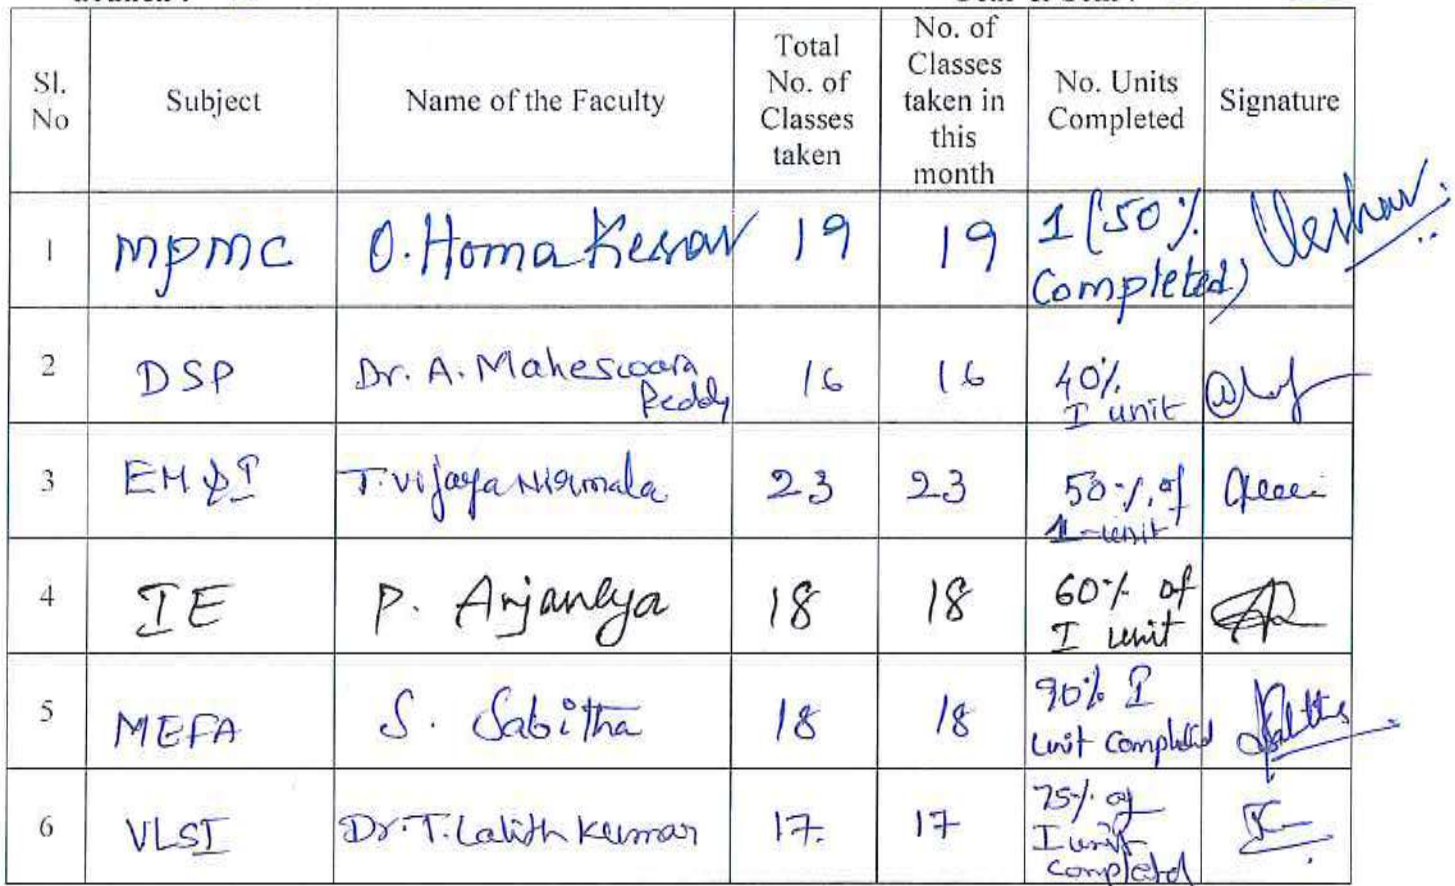 Sl. No | Subject | Name of the Faculty | Total No. of Classes taken | No. of Classes taken in this month | No. Units Completed | Signature
1 | MPMC | O. Homa Kesav | 19 | 19 | 1 (50% Completed)
2 | DSP | Dr. A. Maheswara Reddy | 16 | 16 | 40% I unit
3 | EM & I | T. Vijaya Nirmala | 23 | 23 | 50% of 1-unit
4 | IE | P. Anjaneya | 18 | 18 | 60% of I unit
5 | MEFA | S. Sabitha | 18 | 18 | 90% I unit completed
6 | VLSI | Dr. T. Lalith Kumar | 17. | 17 | 75% of I unit completed